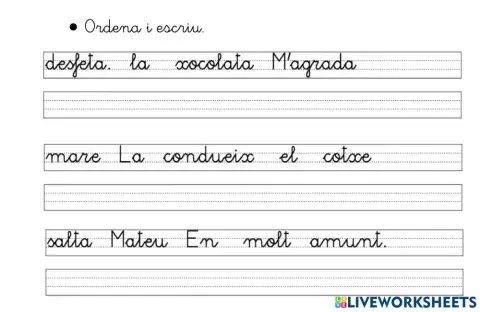 ● Ordena i escriu.
desfeta. la xocolata M'agrada
mare La condueix el cotxe
salta Mateu En molt amunt.
LIVEWORKSHEETS